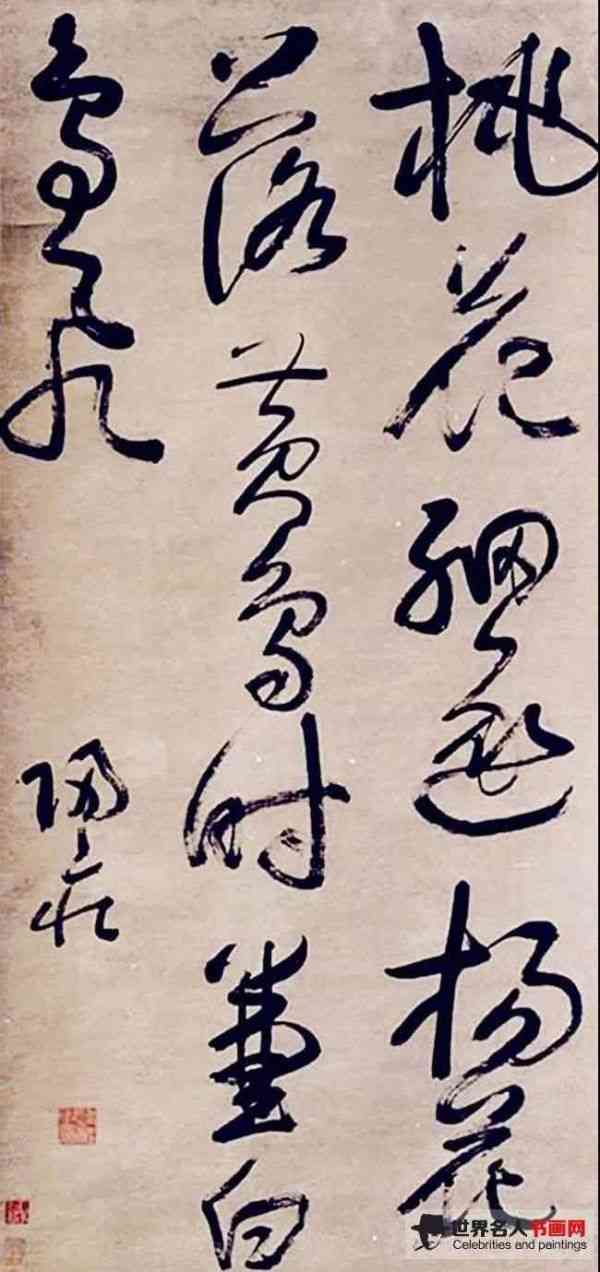 桃花細逐楊花
落黃鳥時兼白
鳥飛
歸莊
世界名人书画网
Celebrities and paintings